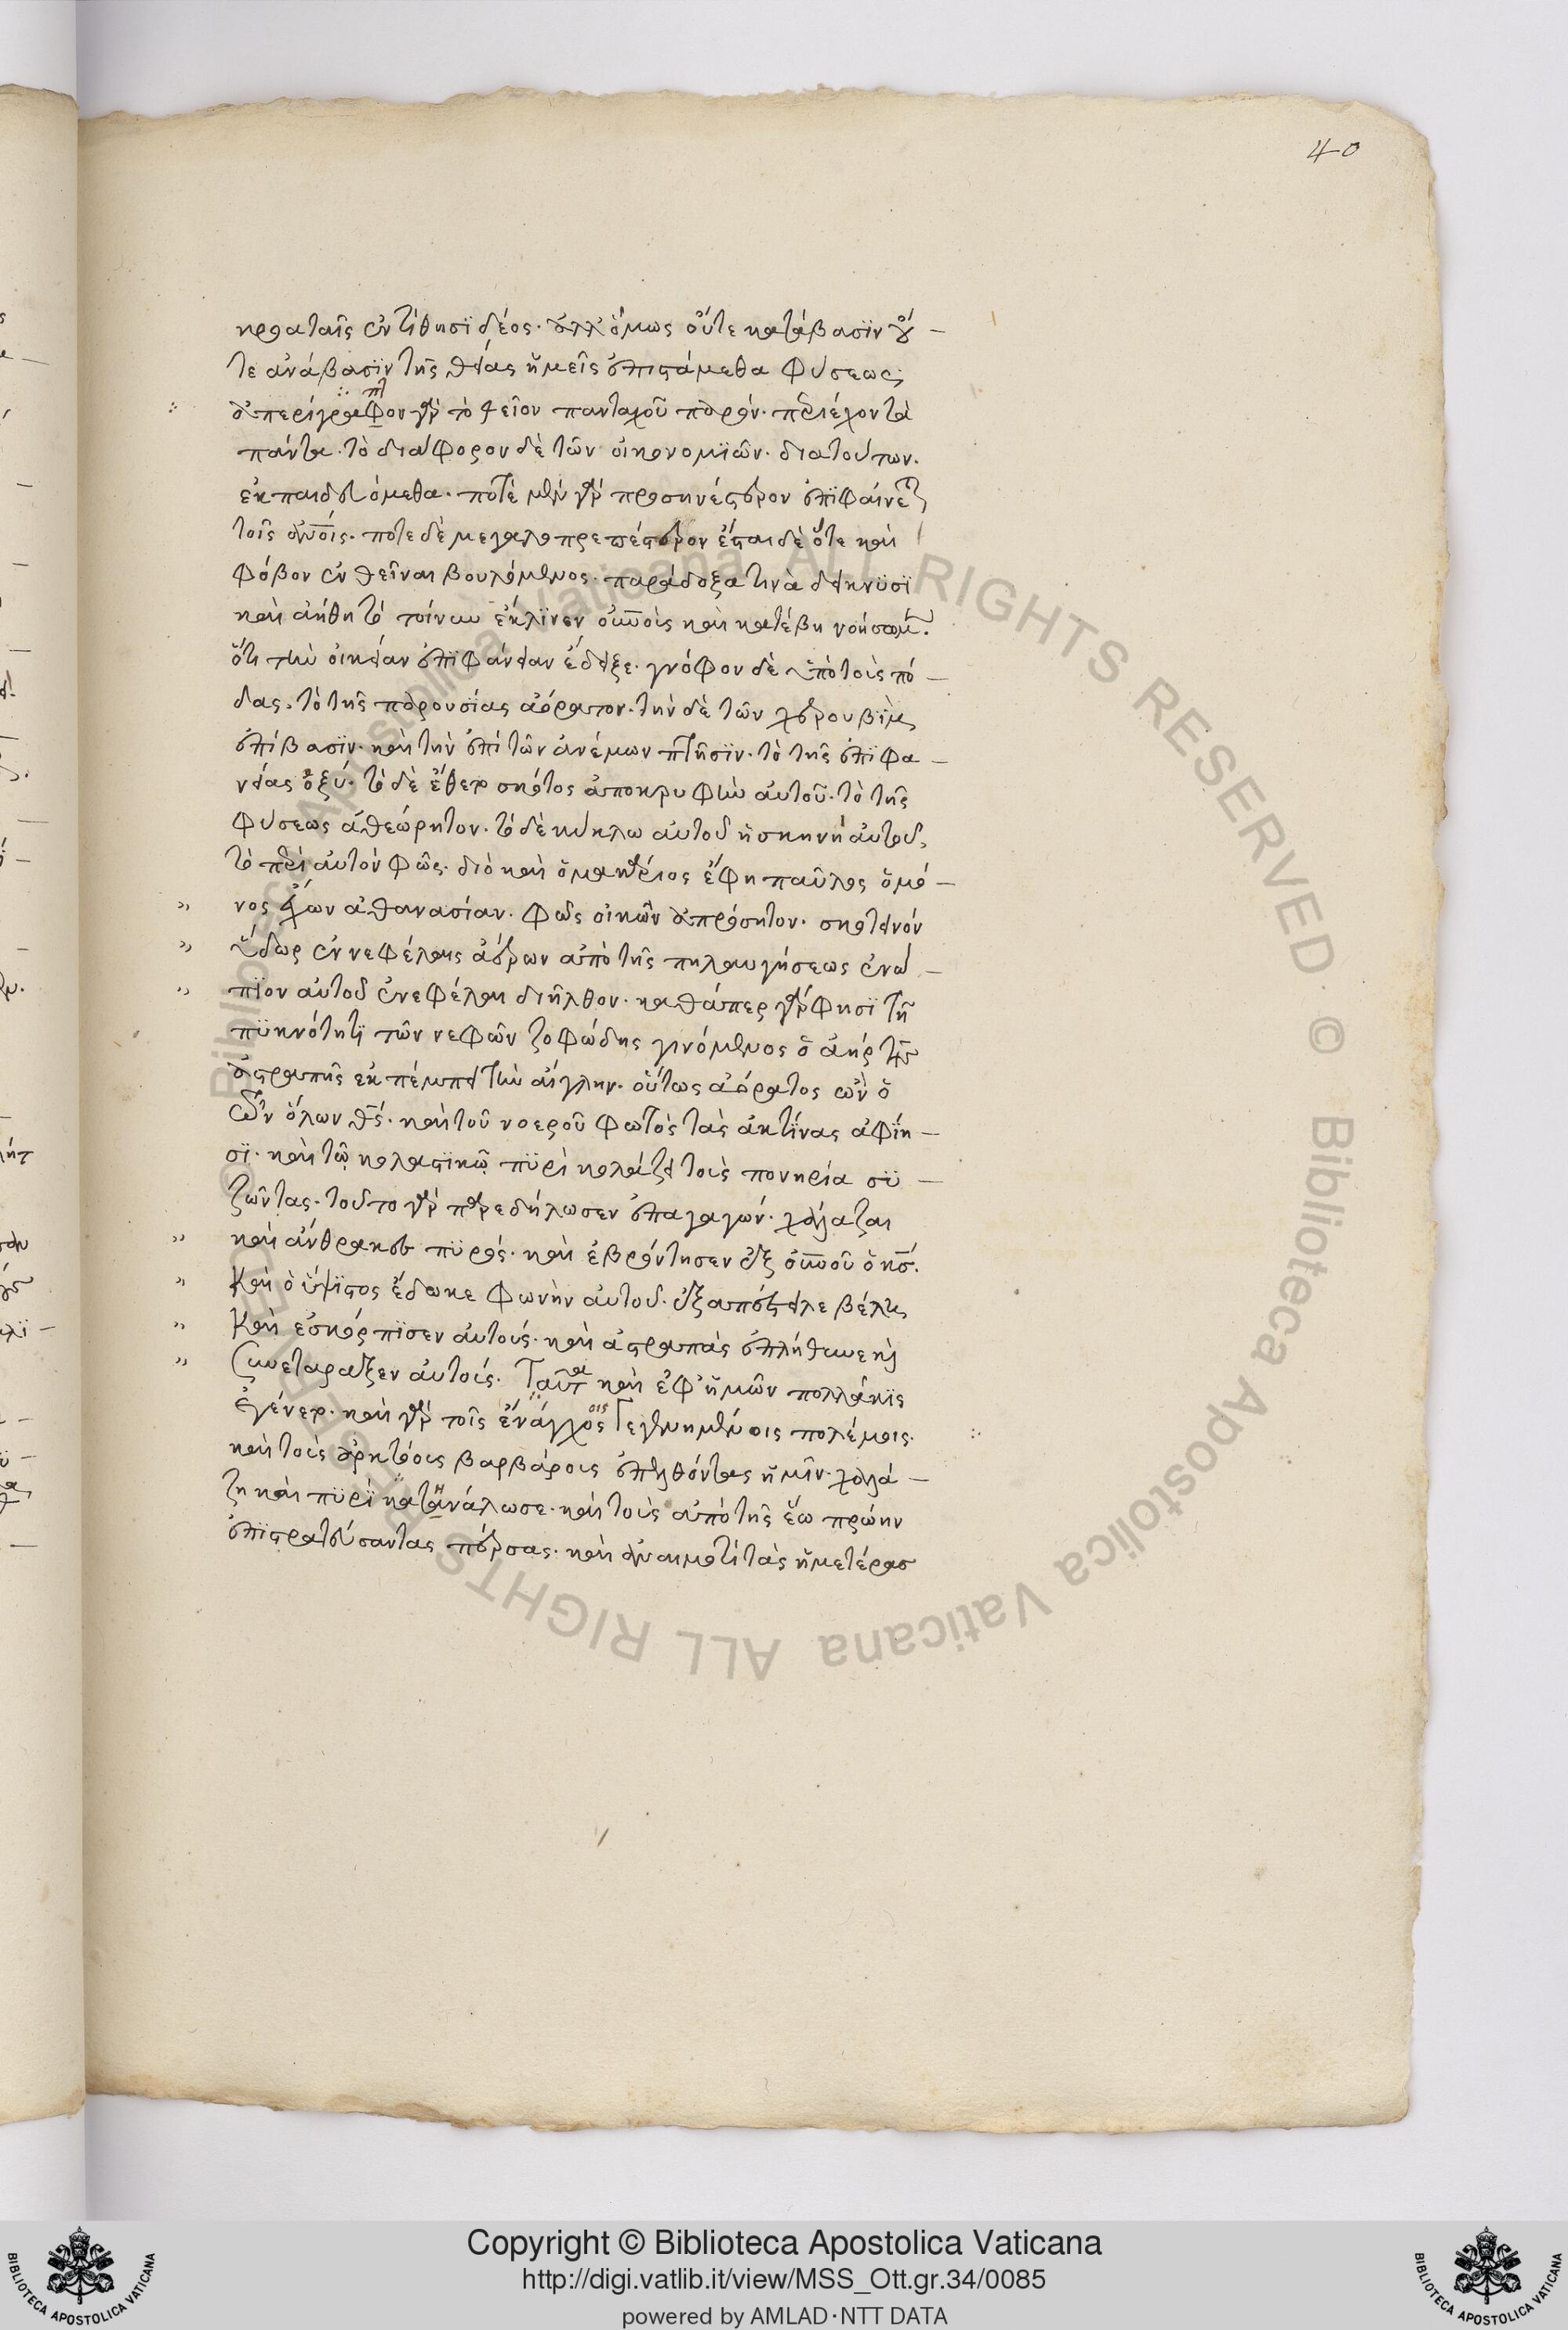 40
κραταῖς ἐντίθησϊ δέος· ἀλλ' ὅμως οὔτε κατάβασϊν οὔ –
τε ἀνάβασϊν τῆς θείας ἡμεῖς ἐπιστάμεθα φύσεως·
ἀπερίγραφον γὰρ τὸ θεῖον πανταχοῦ παρόν· περιέχον τὰ
πάντα· τὸ διάφορον δὲ τῶν οἰκονομϊῶν· διατούτων.
ἐκπαιδευόμεθα· ποτὲ μὲν γὰρ προσηνέστερον ἐπϊφαίνεται
τοῖς ἀνοις· ποτε δὲ μεγαλοπρεπέστερον ἔσται δὲ ὅτε καὶ
φόβον ἐνθεῖναι βουλόμενος· παράδοξα τινὰ δείκνϋσϊ
καὶ ἀήθη τὸ τοίνυν ἔκλϊνεν οὐνοὺς καὶ κατέβη νοήσωμεν·
ὅτι τὴν οἰκείαν ἐπϊφάνειαν ἔδειξε· γνόφον δὲ ὑπὸ τοὺς πό –
δας· τὸ τῆς παρουσίας ἀόρατον· τὴν δὲ τῶν χερουβὶμ
ἐπίβασϊν· καὶ τὴν ἐπὶ τῶν ἀνέμων πτῆσϊν· τὸ τῆς ἐπϊφα –
νείας ὀξύ· τὸ δὲ ἔθετο σκότος ἀποκρυφὴν αὐτοῦ· τὸ τῆς
φύσεως ἀθεώρητον· τὸ δὲ κύκλω αὐτοῦ ἡ σκηνὴ αὐτοῦ,
τὸ περὶ αὐτὸν φῶς· διὸ καὶ ὁ μακάριος ἔφη παῦλος ὁ μό –
νος ἔχων ἀθανασίαν· φῶς οἰκῶν ἀπρόσιτον· σκοτεινὸν
ὕδωρ ἐν νεφέλαις ἀέρων ἀπὸ τῆς τηλαυγήσεως ἐνώ –
πϊον αὐτοῦ ἐνεφέλαι διῆλθον· καθάπερ γὰρ φησϊ τῆ
πϋκνότητϊ τῶν νεφῶν ζοφώδης γινόμενος ὁ ἀὴρ τῆς
ἀστραπῆς ἐκπέμπει τὴν αἴγλην· οὕτως ἀόρατος ὢν ὁ
τῶν ὅλων θς· καὶ τοῦ νοεροῦ φωτὸς τὰς ἀκτῖνας ἀφίη –
σϊ· καὶ τῶ κολαστϊκῶ πϋρὶ κολάζει τοὺς πονηρία σϋ –
ζῶντας· τοῦτο γὰρ παρεδήλωσεν ἐπαγαγών· χάλαζαι
καὶ ἄνθρακες πϋρός· καὶ ἐβρόντησεν ἐξ οὐνοῦ ὁ κς·
Καὶ ὁ ὕψϊστος ἔδωκε φωνὴν αὐτοῦ· ἐξαπέστειλε βέλη
Καὶ ἐσκόρπϊσεν αὐτούς· καὶ ἀστραπὰς ἐπλήθυνε καὶ
Συνεταραξεν αὐτούς· Ταῦτα καὶ ἐφ' ἡμῶν πολλάκϊς
ἐγένετο· καὶ γὰρ τοῖς ἔναγχος γεγενημένοις πολέμοις·
καὶ τοὺς ἀρκτώοις βαρβάροις ἐπελθόντας ἡμῖν· χαλά –
ζη καὶ πϋρὶ κατανάλωσε· καὶ τοὺς ἀπὸ τῆς ἕω πρώην
ἐπϊστρατεύσαντας πέρσας· καὶ ἀναιμωτὶ τὰς ἡμετέρας
Copyright © Biblioteca Apostolica Vaticana
http://digi.vatlib.it/view/MSS_Ott.gr.34/0085
powered by AMLAD·NTT DATA